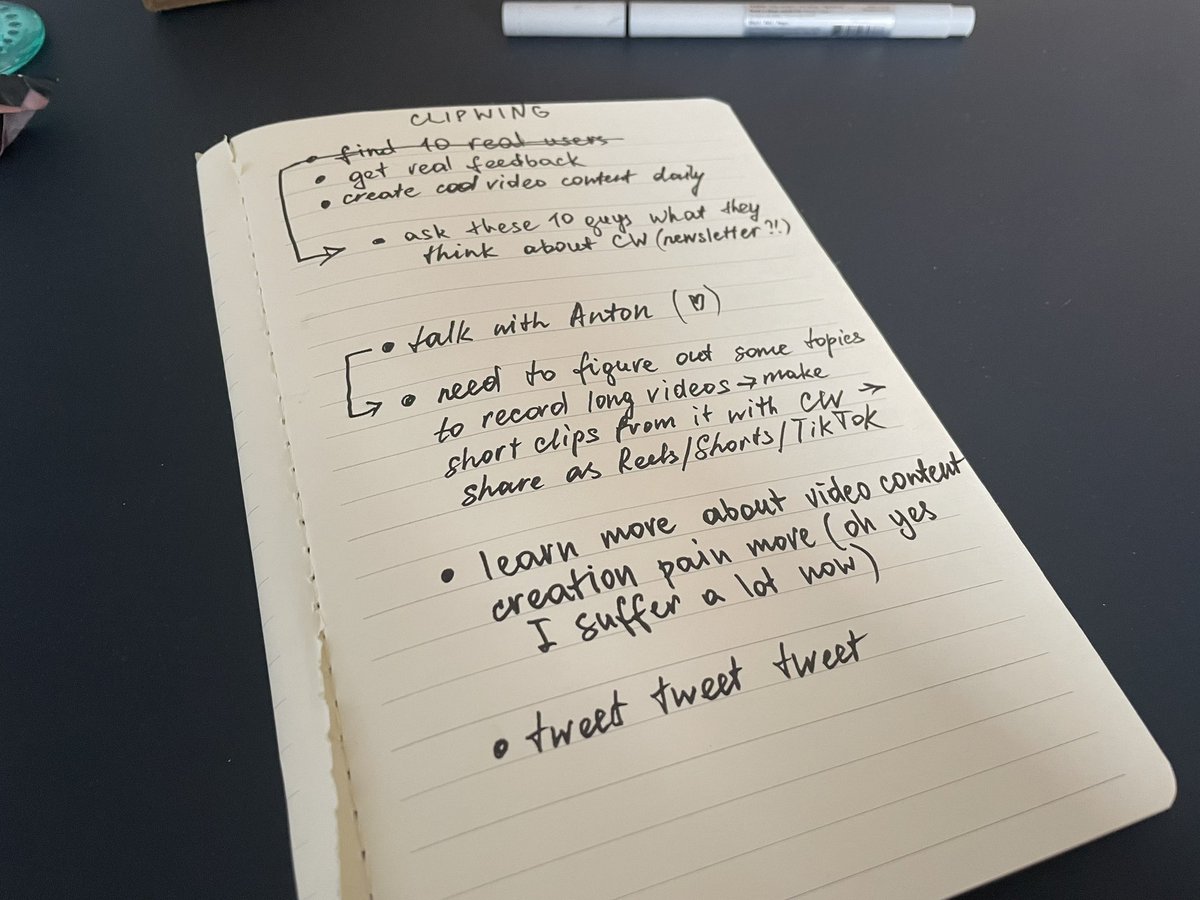 CLIPWING
• find 10 real users
• get real feedback
• create cool video content daily
• ask these 10 guys what they
think about CW (newsletter?!)
• talk with Anton (♡)
• need to figure out some topics
to record long videos → make
short clips from it with CW →
share as Reels/Shorts/TikTok
• learn more about video content
creation pain more (oh yes
I suffer a lot now)
• tweet tweet tweet